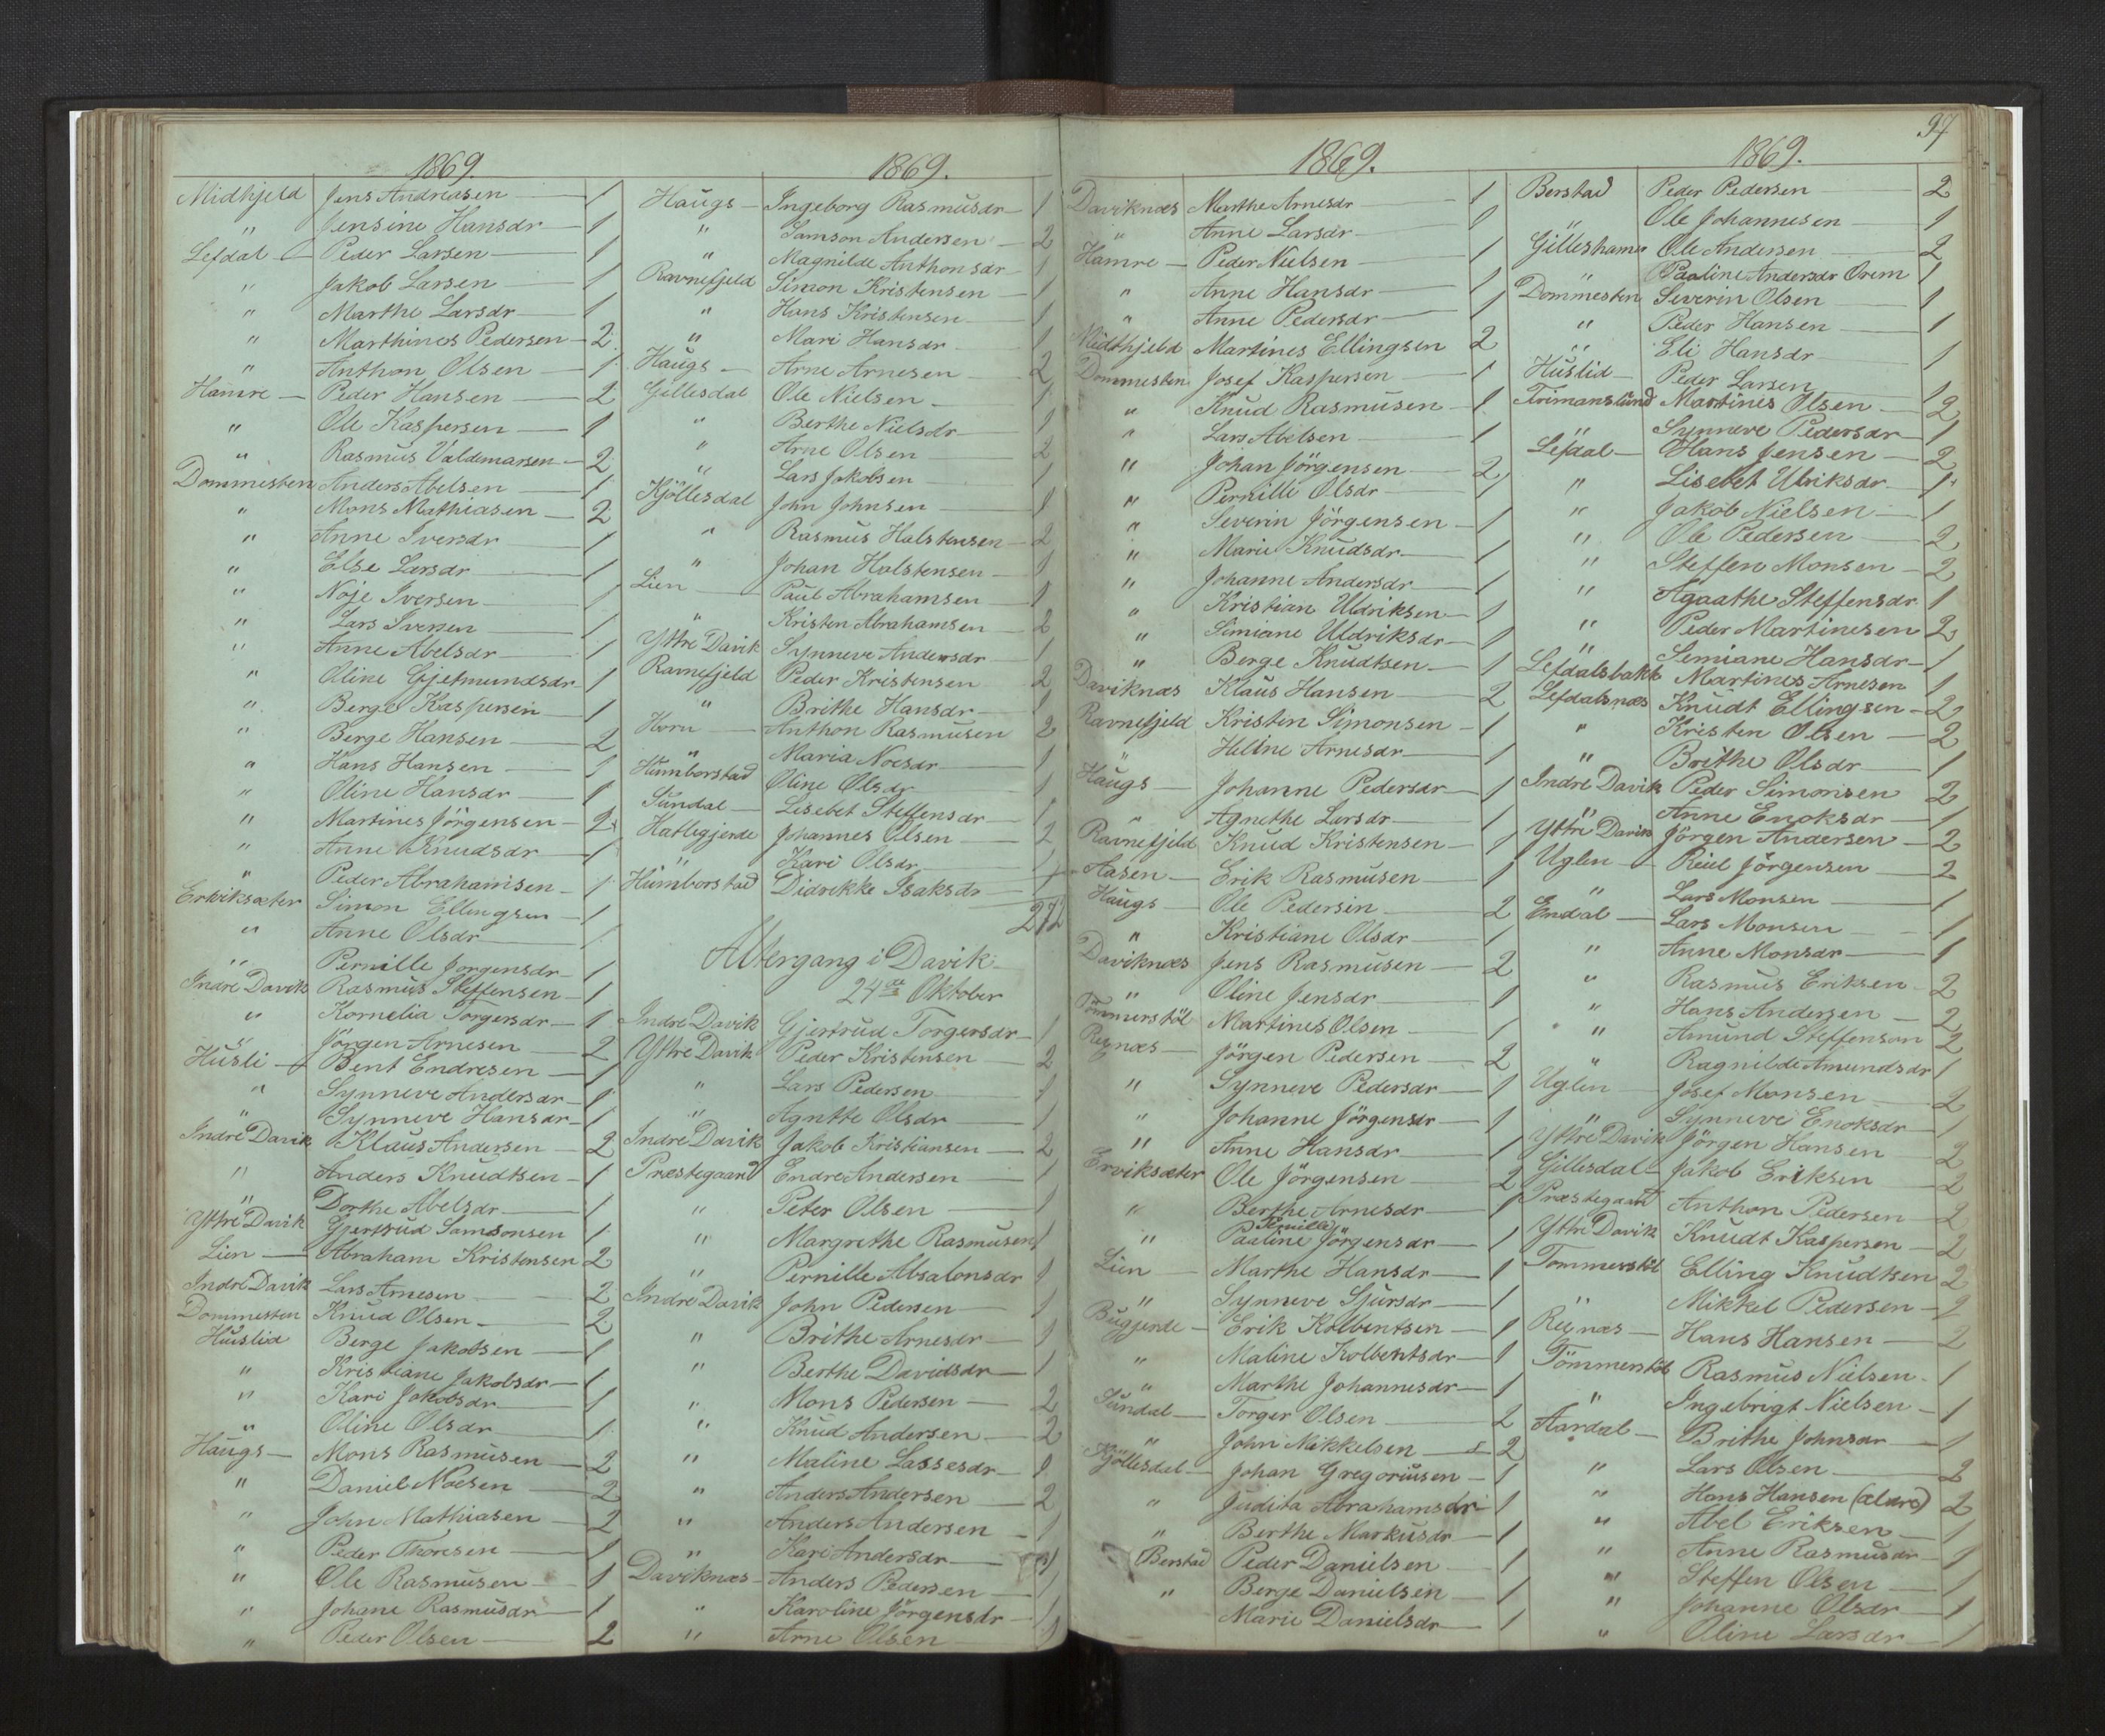 1869.
Midhjeld Jens Andreasen — 1
" Jensine Hansdr — 1
Lefdal — Peder Larsen — 1
" Jakob Larsen — 1
" Marthe Larsdr — 1
" Marthines Pedersen — 2
" Anthon Olsen — 1
Hamre — Peder Hansen — 2
" Ole Kaspersen — 1
" Rasmus Valdemarsen — 2
Dommesten Anders Abelsen — 1
" Mons Mathiasen — 2
" Anne Iversdr — 1
" Else Larsdr — 1
" Noje Iversen — 1
" Lars Iversen — 1
" Anne Abelsdr — 1
" Oline Gjetmundsdr — 1
" Berge Kaspersen — 1
" Berge Hansen — 2
" Hans Hansen — 1
" Oline Hansdr — 1
" Martines Jörgensen — 2
" Anne Knudsdr — 1
" Peder Abrahamsen — 1
Erviksæter Simon Ellingsen — 1
" Anne Olsdr — 1
" Pernille Jorgensdr — 1
Indre Davik Rasmus Steffensen — 1
" Kornelia Torgersdr — 1
" Jörgen Arnesen — 2
Husli — Bent Endresen — 1
" Synneve Andersdr — 1
" Synneve Hansdr — 1
Indre Davik Klaus Andersen — 2
" Anders Knudtsen — 1
" Dorthe Abelsdr — 1
Yttre Davik Gjertrud Samsonsen 1
Lien — Abraham Kristensen 2
Indre Davik Lars Arnesen — 2
Dommesten Knud Olsen — 2
Huslid Berge Jakobsen — 1
" Kristiane Jakobsdr — 1
" Kari Jakobsdr — 1
" Oline Olsdr — 1
Haugs — Mons Rasmusen — 2
" Daniel Noesen — 2
" John Mathiasen — 2
" Peder Thoresen — 1
" Ole Rasmusen — 1
" Johane Rasmusdr — 1
" Peder Olsen — 2
1869.
Haugs — Ingeborg Rasmusdr — 1
" Samson Andersen — 2
" Magnilde Anthonsdr — 1
Ravnefjeld Simon Kristensen — 1
" Hans Kristensen — 1
" Mari Hansdr — 1
Haugs — Arne Arnesen — 2
Gillesdal Ole Nielsen — 1
" Berthe Nielsdr — 1
" Arne Olsen — 2
" Lars Jakobsen — 1
Hjöllesdal John Johnsen — 1
" Rasmus Halstensen — 2
" Johan Halstensen — 1
Lien — Paul Abrahamsen — 1
" Kristen Abrahamsen — 2
Yttre Davik Synneve Andersdr — 1
Ravnefjeld Peder Kristensen 2
" Brithe Hansdr — 1
Horn — Anthon Rasmusen 2
" Maria Noesdr — 1
Humborstad Oline Olsdr — 1
Sundal — Lisebet Steffensdr — 1
Hatlegjerde Johannes Olsen — 2
" Kari Olsdr — 1
Humborstad Didrikke Isaksdr — 1
272
Altergang i Davik
24de Oktober
Indre Davik Gjertrud Torgersdr — 1
Yttre Davik Peder Kristensen — 2
" Lars Pedersen — 1
" Agntte Olsdr — 1
Indre Davik Jakob Kristiansen — 2
Præstegaard Endre Andersen — 1
" Peter Olsen — 1
" Margrethe Rasmusen 1
" Pernille Absalonsdr 1
Indre Davik John Pedersen — 1
" Brithe Arnesdr — 1
" Berthe Davidsdr — 1
" Mons Pedersen — 2
" Knud Andersen — 2
" Maline Lassesdr — 1
" Anders Andersen — 2
" Anders Andersen — 1
" Kari Andersdr — 1
Daviknæs — Anders Pedersen — 1
" Karoline Jörgensdr — 1
" Arne Olsen — 1
97
1869.
Daviknæs Marthe Arnesdr — 1
" Anne Larsdr — 1
Hamre — Peder Nielsen — 1
" Anne Hansdr — 1
" Anne Pedersdr — 1
Midthjeld Martines Ellingsen 2
Dommesten Josef Kaspersen — 1
" Knud Rasmusen — 1
" Lars Abelsen — 1
" Johan Jörgensen — 2
" Pernille Olsdr — 1
" Severin Jörgensen — 1
" Marie Knudsdr — 1
" Johanne Andersdr — 1
" Kristian Uldriksen — 1
" Simiane Uldriksdr — 1
" Berge Knudtsen — 1
Daviknæs Klaus Hansen — 2
Ravnefjeld Kristen Simonsen — 1
" Heline Arnesdr — 1
Haugs — Johanne Pedersdr — 1
" Agnethe Larsdr — 1
Ravnefjeld Knud Kristensen — 1
Aasen — Erik Rasmusen — 1
Haugs — Ole Pedersen — 2
" Kristiane Olsdr — 1
Daviknæs Jens Rasmusen — 2
" Oline Jensdr — 1
Tömmerstöl Martines Olsen — 1
Reknæs — Jörgen Pedersen — 2
" Synneve Pedersdr — 1
" Johanne Jörgensdr — 1
" Anne Hansdr — 1
Erviksæter Ole Jörgensen — 2
" Berthe Arnesdr — 1
Pernille
" Paaline Jörgensdr — 1
Lien — Marthe Hansdr — 1
" Synneve Sjursdr — 1
Bugjerde — Erik Kolbentsen — 1
" Maline Kolbentsdr — 1
" Marthe Johannesdr — 1
Sundal — Torger Olsen — 2
" John Mikkelsen — 2
Hjöllesdal — Johan Gregoriusen — 1
" Judita Abrahamsdr — 1
" Berthe Markusdr — 1
Berstad Peder Danielsen — 1
" Berge Danielsen — 1
Marie Danielsdr — 1
1869.
Berstad Peder Pedersen — 2
" Ole Johannesen — 1
Gilleshamre Ole Andersen — 2
" Paaline Andersdr Orem 1
Dommesten Severin Olsen — 1
" Peder Hansen — 1
" Eli Hansdr — 1
Huslid — Peder Larsen — 1
Trimanslund Martines Olsen — 2
" Synneve Pedersdr — 1
Lefdal — Hans Jensen — 2
" Lisebet Ulriksdr — 1
" Jakob Nielsen — 1
" Ole Pedersen — 2
" Steffen Monsen — 2
" Agaathe Steffensdr 1
" Peder Martinesen 2
" Semiane Hansdr — 1
Lefdalsbakk Martines Arnesen 1
Lefdalsnæs Knudt Ellingsen — 2
" Kristen Olsen — 2
" Brithe Olsdr — 1
Indre Davik Peder Simonsen 2
" Anne Enoksdr — 1
Yttre Davik Jörgen Andersen — 2
Uglen — Reiel Jörgensen — 2
" Lars Monsen — 1
Endal — Lars Monsen — 1
" Anne Monsdr — 1
" Rasmus Eriksen — 2
" Hans Andersen — 2
" Amund Steffenson 2
" Ragnilde Amundsdr 1
Uglen — Josef Monsen — 2
" Synneve Enoksdr — 1
Yttre Davik Jörgen Hansen — 2
Gillesdal — Jakob Eriksen — 2
Præstegaard Anthon Pedersen — 2
Yttre Davik Knudt Kaspersen — 2
Tommerstöl Elling Knudtsen 2
" Mikkel Pedersen — 2
Reknæs — Hans Hansen — 2
Tömmerstöl Rasmus Nielsen — 1
" Ingebrigt Nielsen — 1
Aardal — Brithe Johnsdr — 1
" Lars Olsen — 2
" Hans Hansen (ældre) 2
" Abel Eriksen — 1
" Anne Rasmusdr — 1
" Steffen Olsen — 1
" Johanne Olsdr — 1
" Oline Larsdr — 1